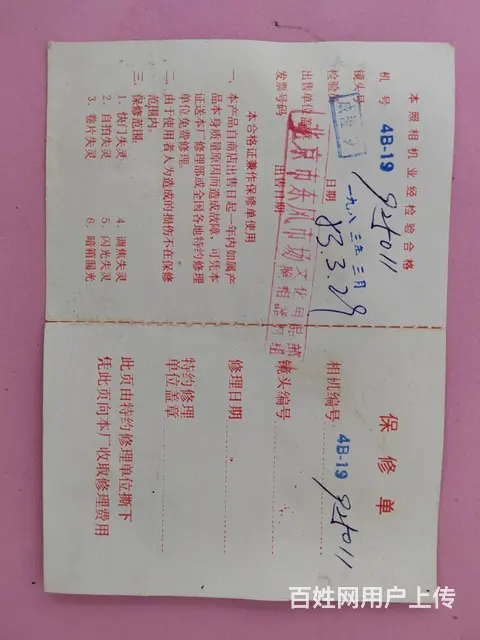 本照相机业经检验合格
机号 4B-19 925011
镜头号
检验员
一九八三年三月
出售单位
日期 83.3.29
发票号码
出售日期
北京市东风市场
本合格证兼作保修单使用
一、本产品自商店出售日起一年内如属产
品本身质量原因而造成故障，可凭本
证送本厂修理部或全国各地特约修理
单位免费修理。
二、由于使用者人为造成的损伤不在保修
范围内。
三、保修范围：
1. 快门失灵 4. 调焦失灵
2. 自拍失灵 5. 闪光失灵
3. 卷片失灵 6. 暗箱漏光
保修单
相机编号 4B-19 925011
镜头编号
修理日期
特约修理
单位盖章
此页由特约修理单位撕下
凭此页向本厂收取修理费用
百姓网用户上传